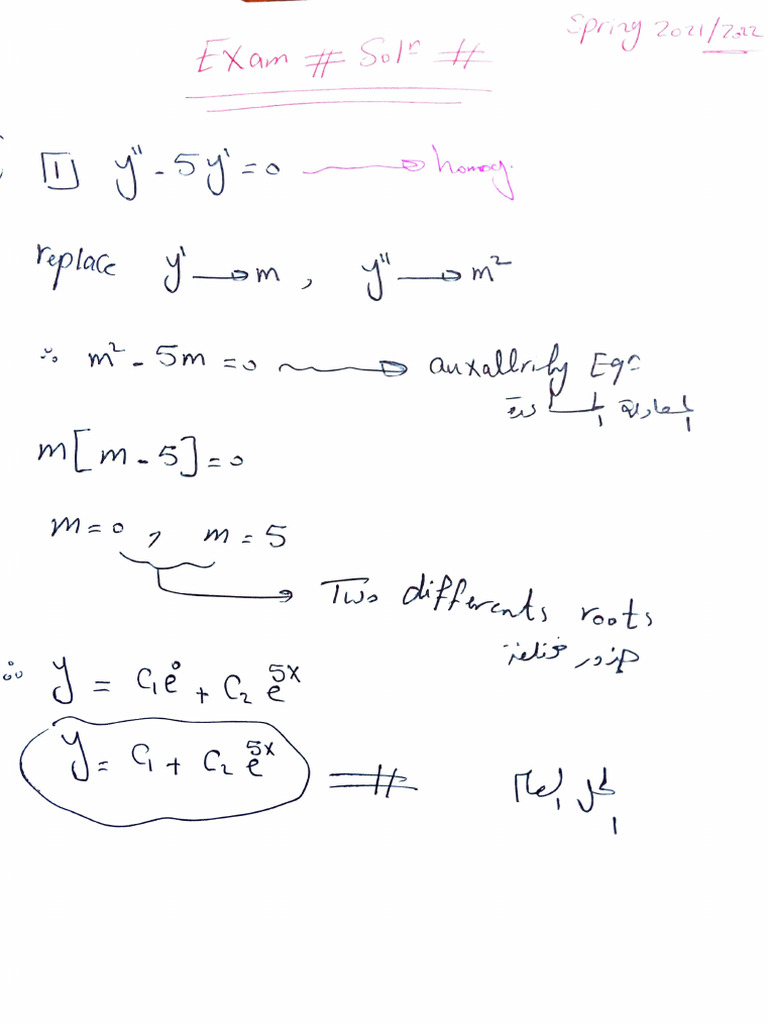 Spring 2021/2022
Exam # Solⁿ #
1 y'' - 5y' = 0 → homog.
replace y' → m , y'' → m²
∴ m² - 5m = 0 → auxallrify Eqⁿ
المعادلة المساعدة
m[m - 5] = 0
m = 0 , m = 5
→ Two differents roots
جذور مختلفة
∴ y = c₁e⁰ + c₂e⁵ˣ
y = c₁ + c₂e⁵ˣ #
الحل العام